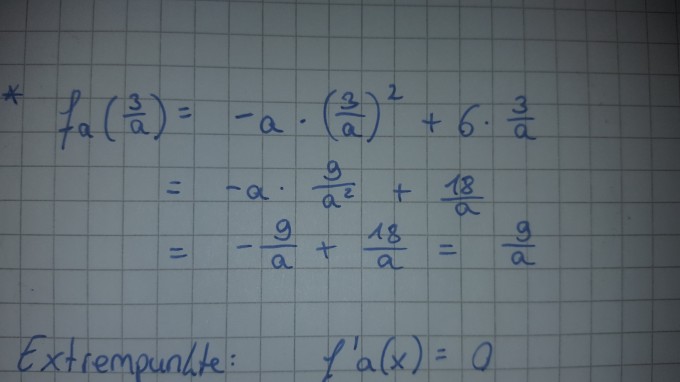 * fₐ(3/a) = -a · (3/a)² + 6 · 3/a
= -a · 9/a² + 18/a
= -9/a + 18/a = 9/a
Extrempunkte: f'a(x) = 0